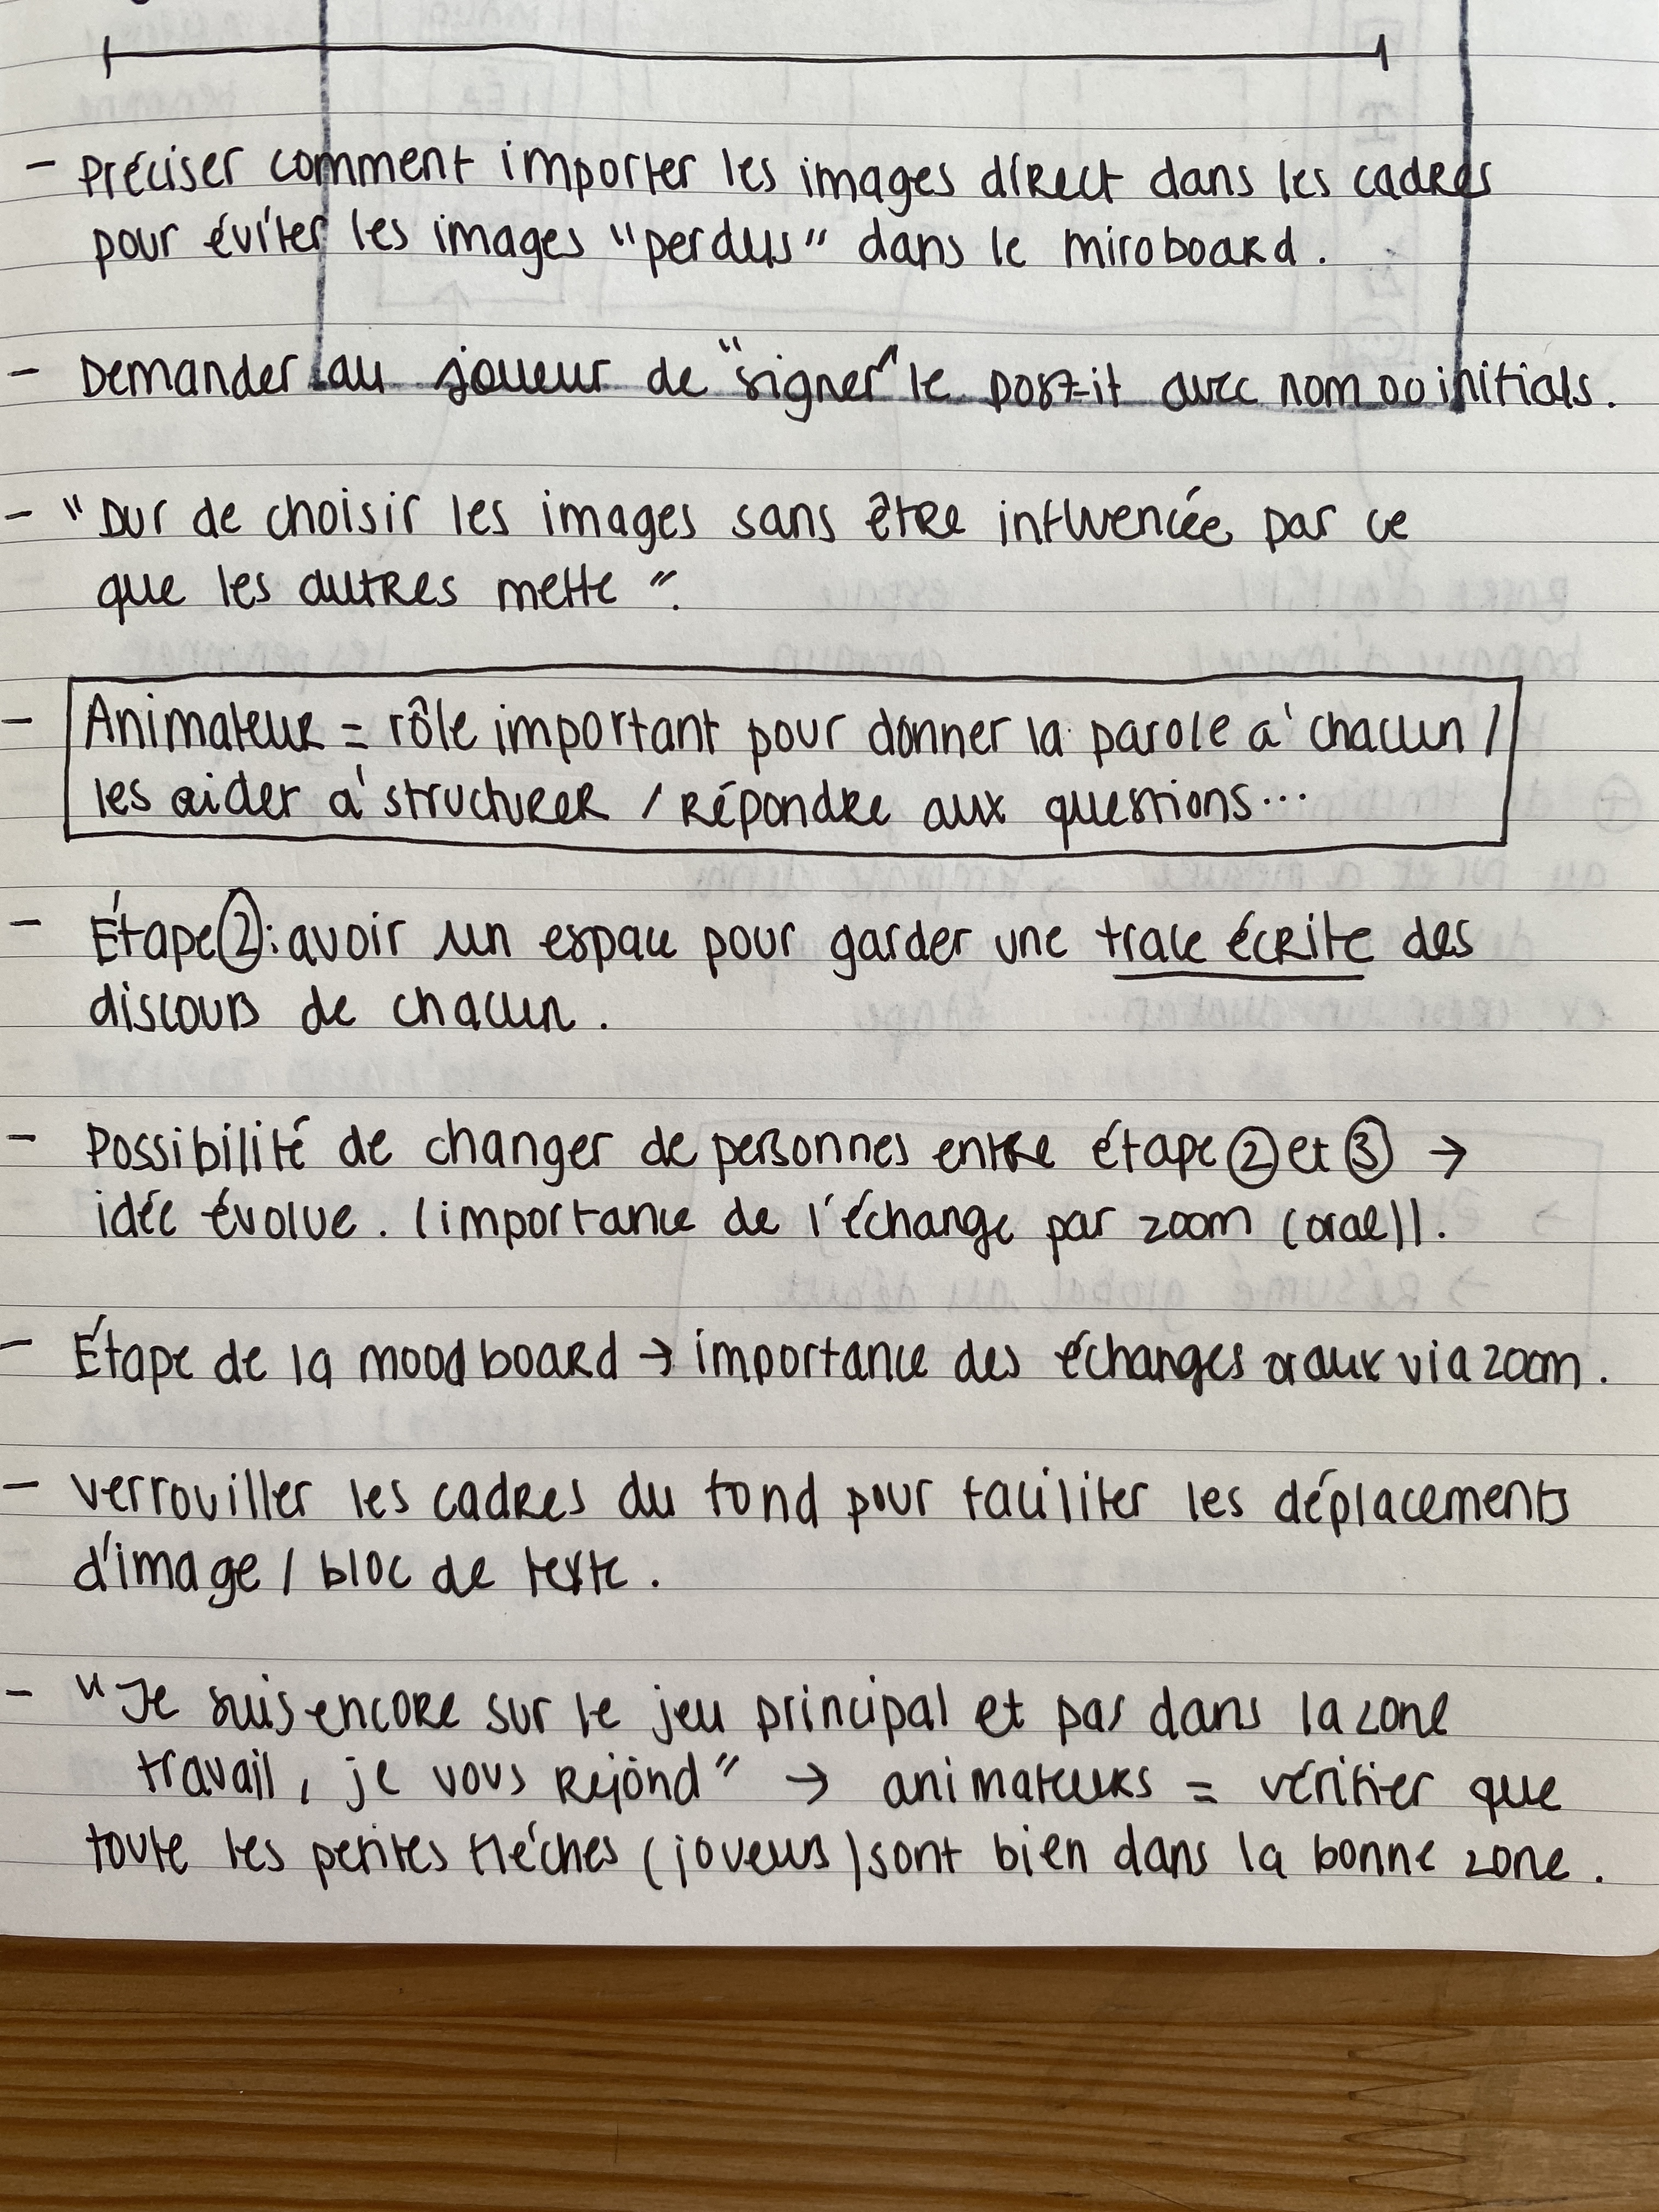 - Préciser comment importer les images direct dans les cadres
pour éviter les images "perdus" dans le miroboard.
- Demander au joueur de "signer" le post-it avec nom ou initials.
- "Dur de choisir les images sans être influencée par ce
que les autres mette".
- Animateur = rôle important pour donner la parole à chacun /
les aider à structurer / répondre aux questions...
- Étape ② : avoir un espace pour garder une trace écrite des
discours de chacun.
- Possibilité de changer de personnes entre étape ② et ③ →
idée évolue. (importance de l'échange par zoom (oral)).
- Étape de la moodboard → importance des échanges oraux via zoom.
- verrouiller les cadres du fond pour faciliter les déplacements
d'image / bloc de texte.
- "Je suis encore sur le jeu principal et pas dans la zone
travail, je vous rejoind" → animateurs = vérifier que
toute les petites fléches (joueurs) sont bien dans la bonne zone.